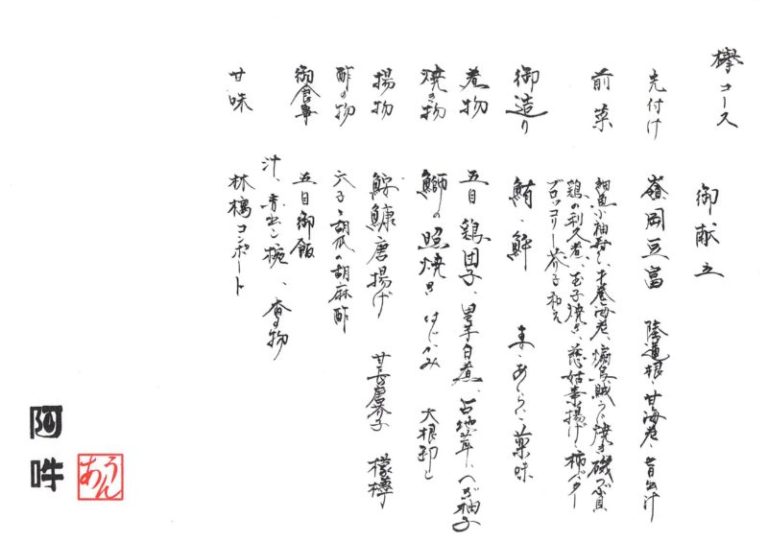 欅コース
御献立
先付け 嶺岡豆富 陸蓮根、甘海老、旨出汁
前菜 細魚小袖寿し、才巻海老、烏賊うに焼き、磯つぶ貝
鶏の利久煮、玉子焼き、慈姑素揚げ、柿バター
ブロッコリー芥子和え
御造り 鮪、鮃 妻、あしらい、薬味
煮物 五目鶏団子、里芋白煮、占地茸、へぎ柚子
焼き物 鰤の照焼き はじかみ 大根卸し
揚物 唐揚げ 甘長唐芥子 檸檬
酢の物 六子と胡瓜の胡麻酢
御食事 五目御飯
汁、赤出し椀、香の物
甘味 林檎コンポート
阿吽
あうん